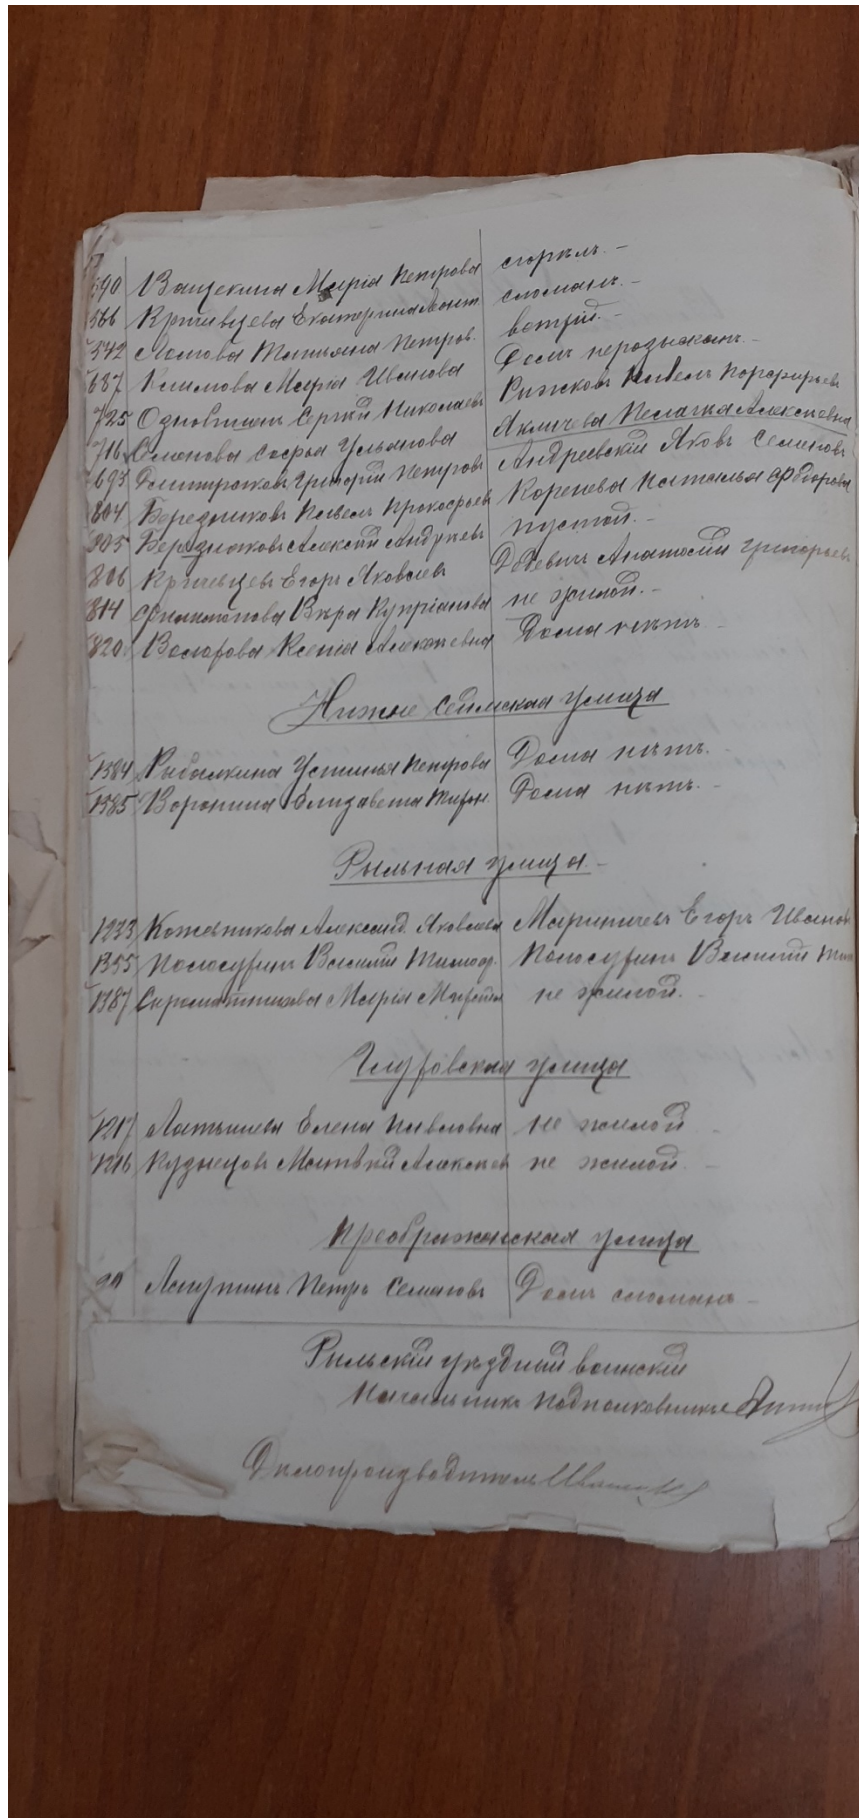 540 Ващекина Марія Петрова сгорѣлъ. -
566 Кривцева Екатерина сломанъ. -
572 Татьяна Петров. ветхій. -
687 Климова Марія Иванова Домъ неразысканъ. -
725 Сергѣй Николаевъ Рижковъ Павелъ Порфирьев
716 Семенова Софья Ульянова Пелагея Алексѣевна
693 Григорій Петровъ Андреевскій Яковъ Семеновъ
804 Бередниковъ Павелъ Прокофьев Коренева Наталья Федорова
805 Алексѣй Андреевъ пустой. -
806 Кричевцевъ Егоръ Яковлевъ Анатолій Григорьев
814 Филимонова Вѣра Кипріанова не жилой. -
820 Ксенія Алексѣевна Дома нѣтъ -
Нижне Сеймская улица
1384 Рыбалкина Устинья Петрова Дома нѣтъ. -
1385 Воронина Елизавета Дома нѣтъ. -
Рыльная улица -
1233 Кожевникова Александ. Яковлева Мариничевъ Егоръ Иванов
1355 Василій Тимоф. Василій
1387 Марія не жилой. -
Глуховская улица
1217 Латышева Елена Павловна не жилой -
1216 Кузнецовъ Матвѣй Алексѣев не жилой. -
Преображенская улица
Лапутинъ Петръ Семеновъ Домъ сломанъ -
Рыльскій уѣздный воинскій
Начальникъ Подполковникъ
Дѣлопроизводитель